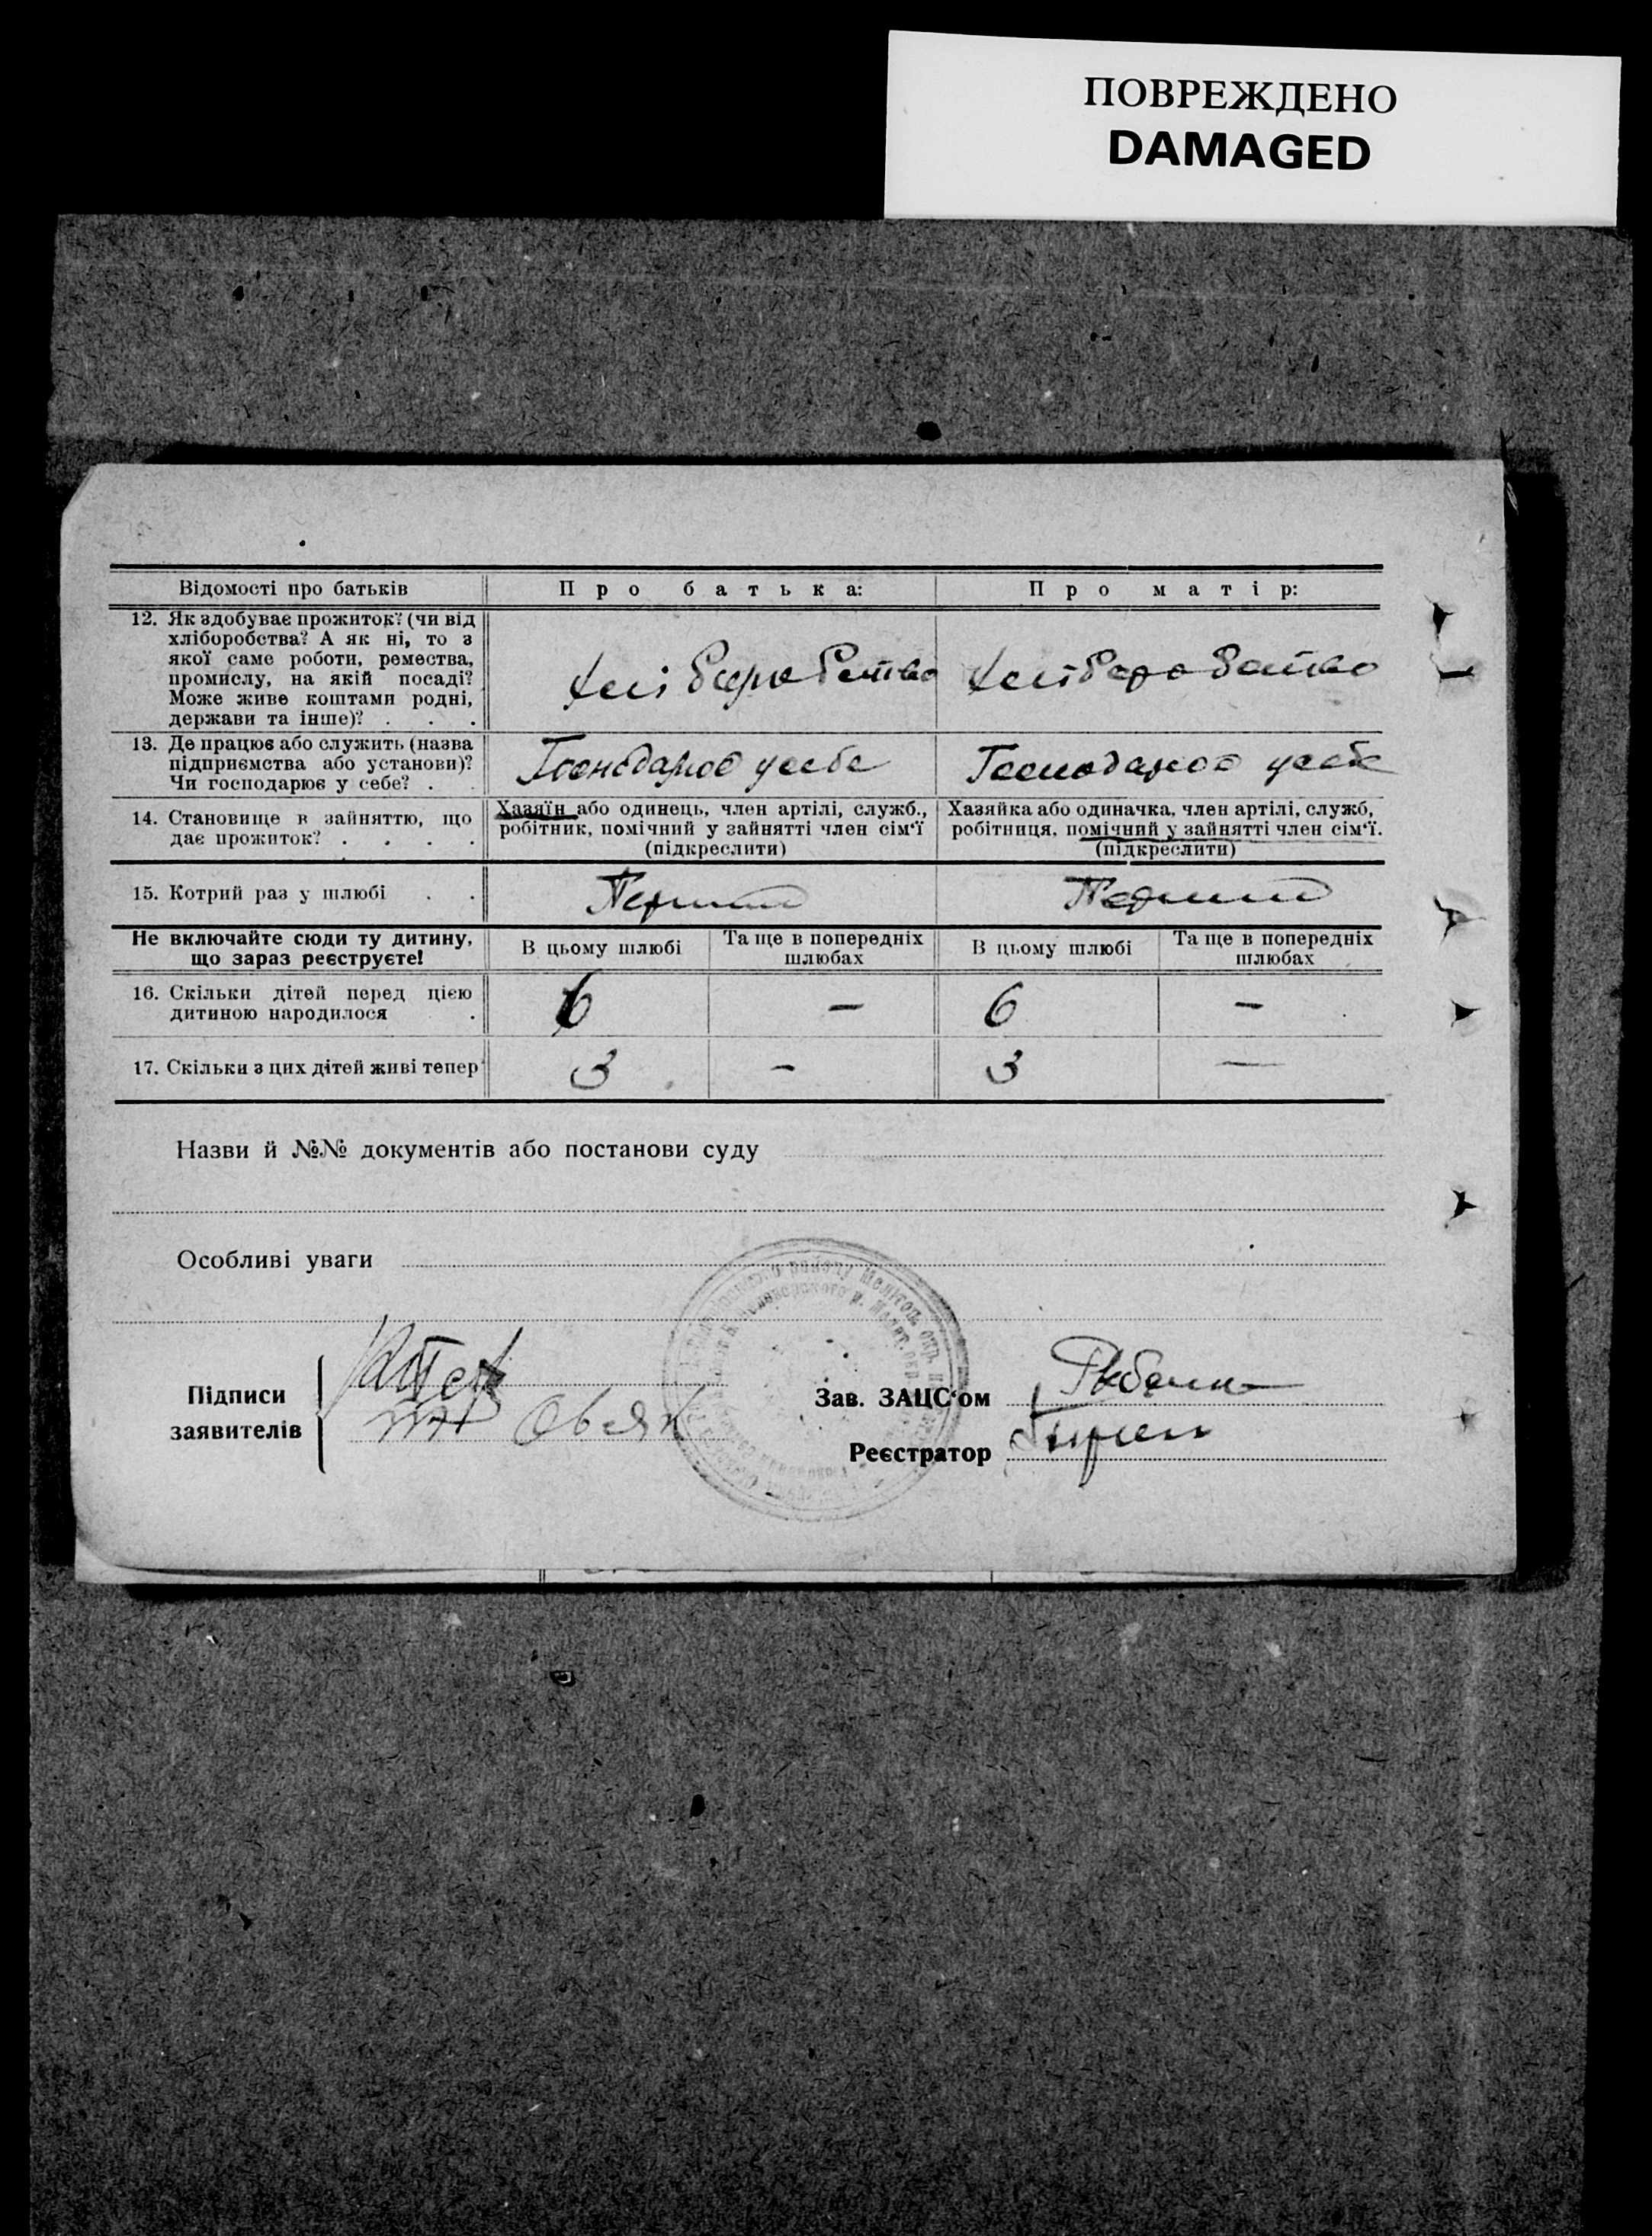 ПОВРЕЖДЕНО
DAMAGED
Відомості про батьків
Про батька:
Про матір:
12. Як здобуває прожиток? (чи від
хліборобства? А як ні, то з
якої саме роботи, ремества,
промислу, на якій посаді?
Може живе коштами родні,
держави та інше)? . . .
Хліборобство
Хліборобство
13. Де працює або служить (назва
підприємства або установи)?
Чи господарює у себе? . .
Господарює у себе
Господарює у себе
14. Становище в зайняттю, що
дає прожиток? . . . .
Хазяїн або одинець, член артілі, служб.,
робітник, помічний у зайнятті член сім'ї
(підкреслити)
Хазяйка або одиначка, член артілі, служб,
робітниця, помічний у зайнятті член сім'ї.
(підкреслити)
15. Котрий раз у шлюбі . .
Перший
Перший
Не включайте сюди ту дитину,
що зараз реєструєте!
В цьому шлюбі
Та ще в попередніх
шлюбах
В цьому шлюбі
Та ще в попередніх
шлюбах
16. Скільки дітей перед цією
дитиною народилося .
6
—
6
—
17. Скільки з цих дітей живі тепер
3
—
3
—
Назви й №№ документів або постанови суду
Особливі уваги
Підписи
заявителів
Зав. ЗАЦС'ом
Реєстратор